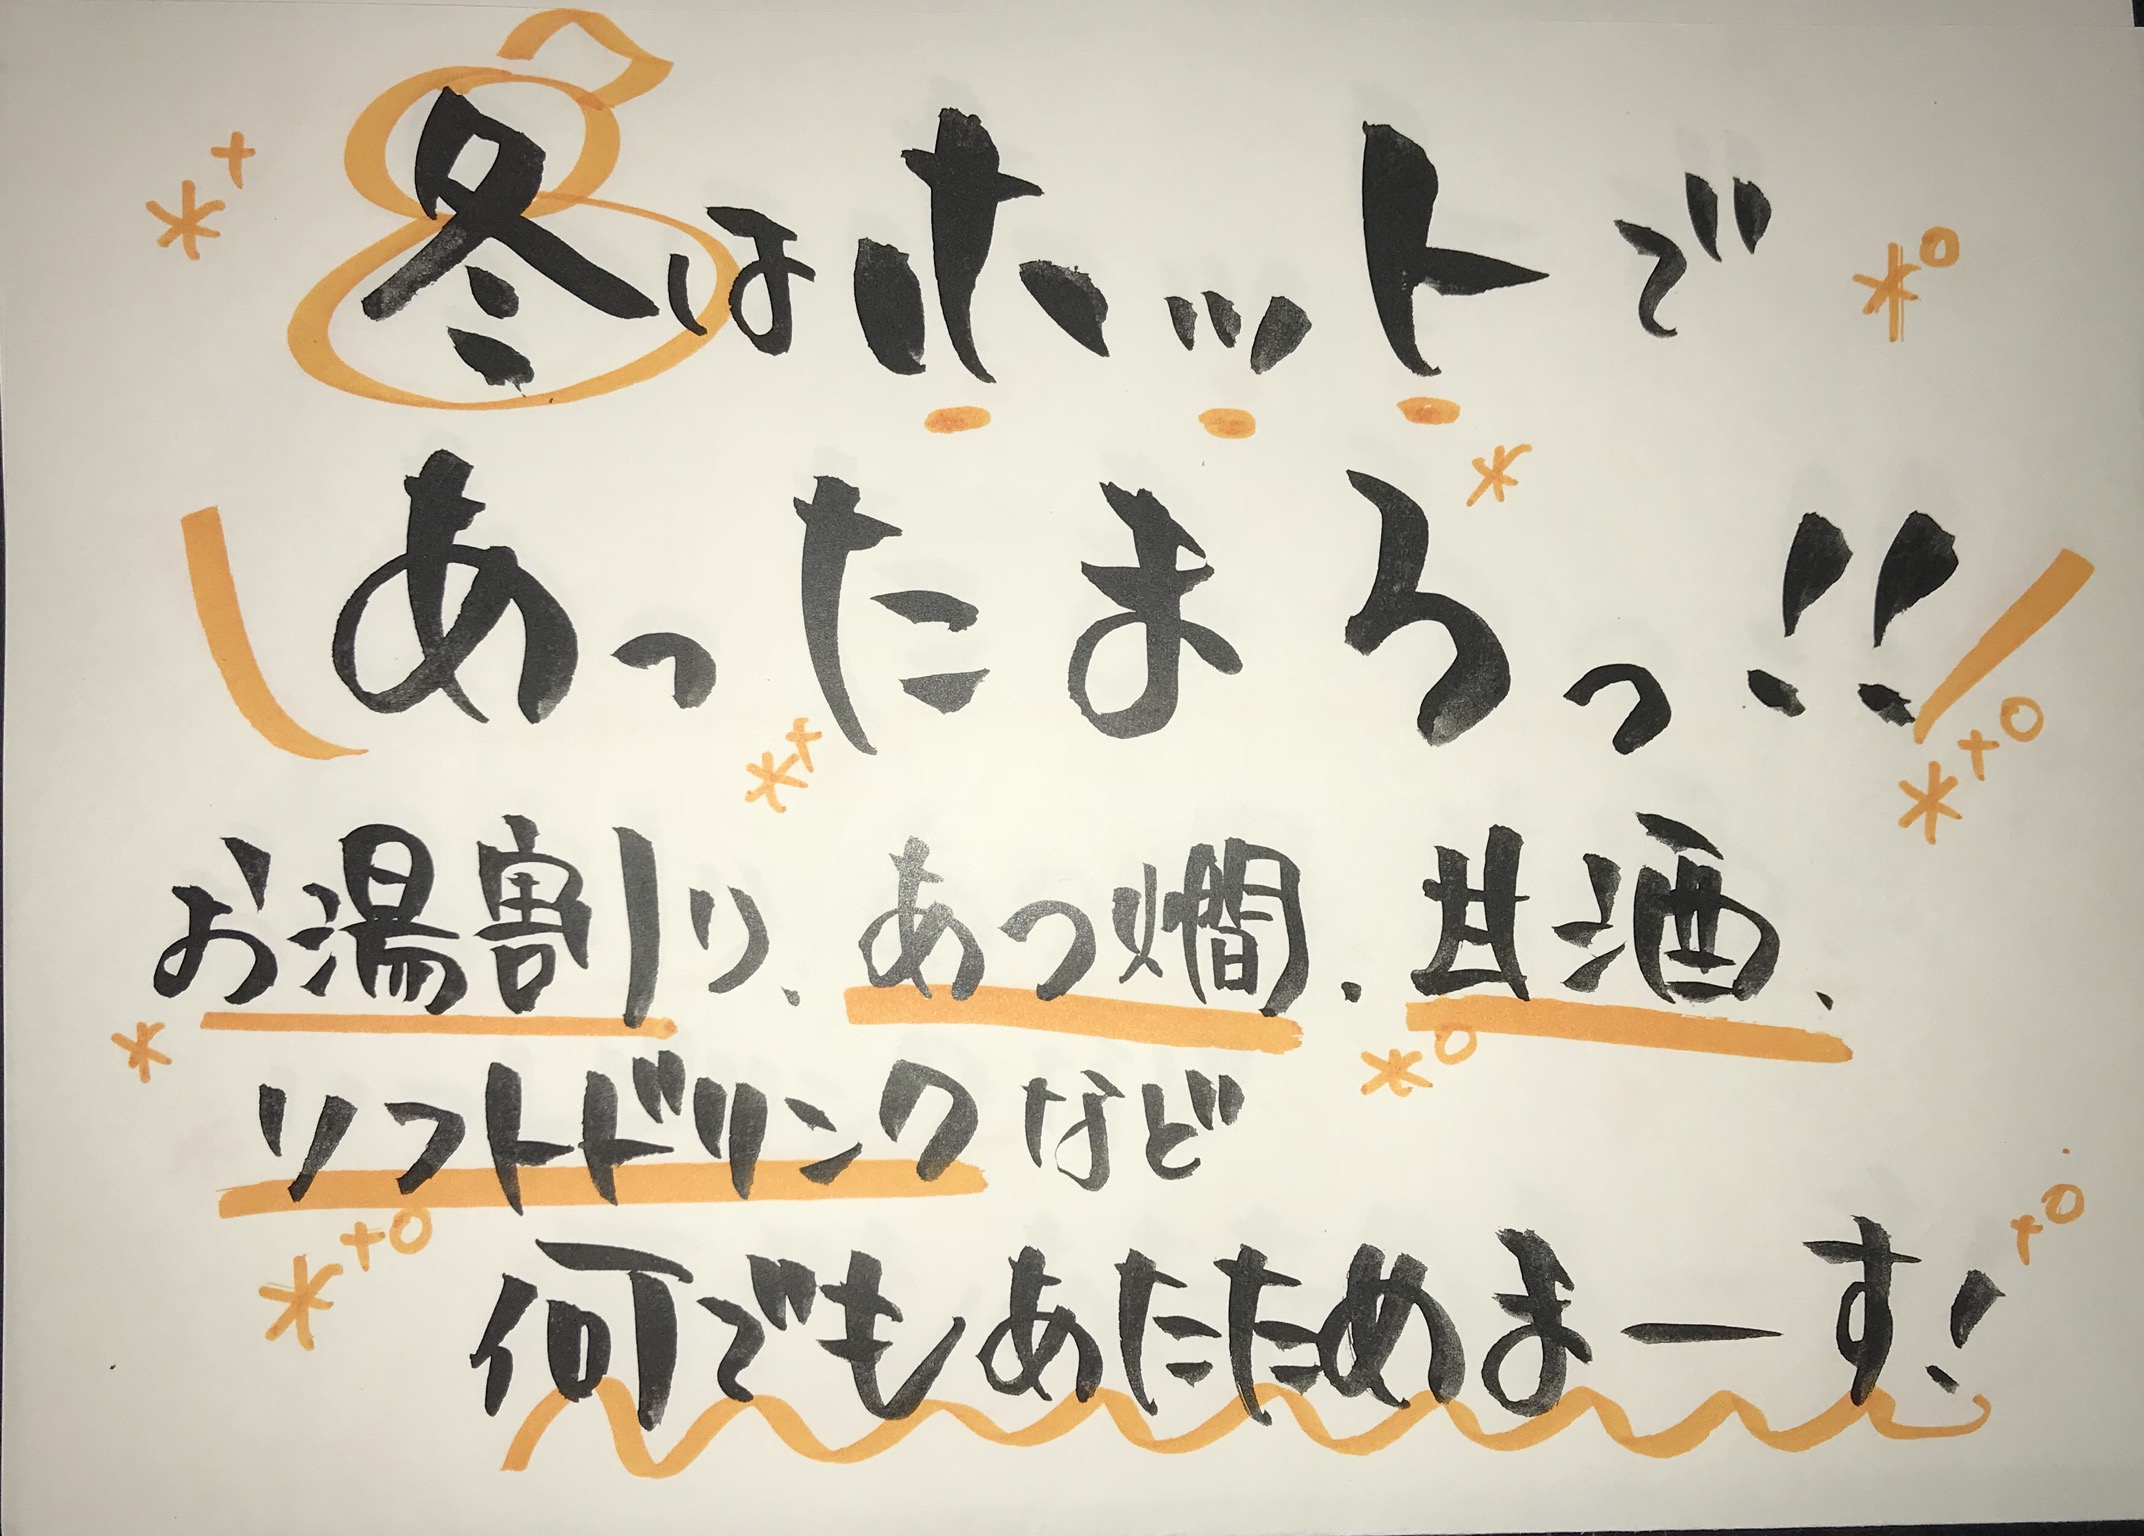 冬はホットで
あったまろっ!!
お湯割り、あつ燗、甘酒、
ソフトドリンクなど
何でもあたためまーす!